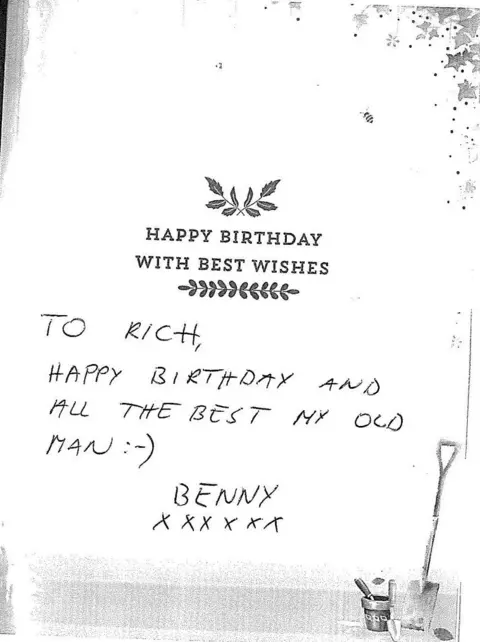 HAPPY BIRTHDAY
WITH BEST WISHES
TO RICH,
HAPPY BIRTHDAY AND
ALL THE BEST MY OLD
MAN :-)
BENNY
X XX X X X